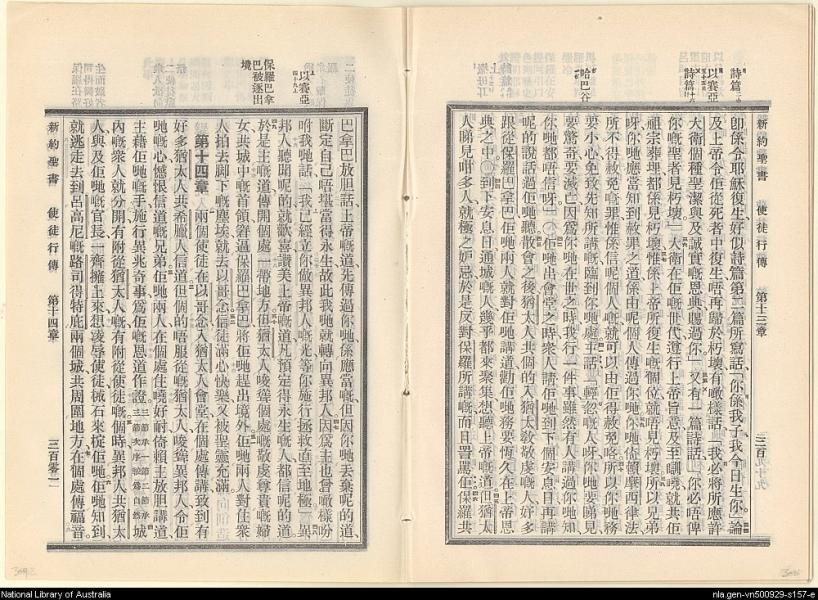 新約聖書　使徒行傳　第十三章
詩篇
以賽亞
詩篇
哈巴谷
卽係令耶穌復生好似詩篇第二篇所寫話你係我子我今日生你論
及上帝令佢從死者中復生唔再歸於朽壞有噉樣話我必將所應許
大衛個種聖潔與及誠實嘅恩典賜過你又有一篇詩話你必唔俾
你嘅聖者見朽壞大衛在佢嘅世代遵行上帝旨意及至瞓曉就共佢
祖宗葬埋都係見朽壞惟係上帝所復生嘅個位就唔見朽壞所以兄弟
呀你哋應當知到赦罪之道係由呢個人傳過你哋你哋倚賴摩西律法
所不得赦免嘅罪惟係信呢個人嘅就可以由佢得赦免咯所以你哋務
要小心免致先知所講嘅臨到你哋處佢話輕忽嘅人呀你哋要睇見
要驚奇要滅亡因爲你哋在世之時我行一件事雖然有人講過你哋知
你哋都唔信呀佢哋出會堂之時衆人請佢哋到下個安息日再講
呢的說話過佢哋聽散會之後猶太人共個的入猶太敎敬虔嘅人好多
跟從保羅巴拿巴佢哋兩人就對佢哋講道勸佢哋務要恆久在上帝恩
典之中到下安息日通城嘅人幾乎都來聚集想聽上帝嘅道但猶太
人睇見咁多人就極之妒忌於是反對保羅所講嘅而且詈罵佢保羅共
保羅巴拿
巴被逐出
境
以賽亞
巴拿巴放胆話上帝嘅道先傳過你哋係應當嘅但因你哋丟棄呢的道
斷定自己唔堪當得永生故此我哋就轉向異邦人因爲主也曾噉樣吩
咐我哋話我已經立你做異邦人嘅光等你施行拯救直至地極異
邦人聽聞呢的就歡喜讚美上帝嘅道凡預定得永生嘅人都信呢的道
於是主嘅道傳開個處一帶地方但猶太人唆聳個處嘅敬虔尊貴嘅婦
女共城中嘅首領窘逼保羅巴拿巴將佢哋趕出境外佢哋兩人對住衆
人拍去脚下嘅塵埃就去以哥念信徒滿心快樂又被聖靈充滿
第十四章　兩個使徒在以哥念入猶太人會堂在個處傳講致到有
好多猶太人共希臘人信道但個的唔服從嘅猶太人唆聳異邦人令佢
哋嘅心憾恨信道嘅兄弟佢哋兩人在個處住嘵好耐倚賴主放胆講道
主藉佢哋嘅手施行異兆奇事爲佢嘅恩道作證三節承一第二節承
三節次序較爲自然城
內嘅衆人就分開有附從猶太人嘅有附從使徒嘅個時異邦人共猶太
人與及佢哋嘅官長一齊擁上來想凌辱使徒揼石來椗佢哋佢哋知到
就逃走去到呂高尼嘅路司得特庇兩個城共周圍地方在個處傳福音
新約聖書　使徒行傳　第十四章
三百零一
National Library of Australia
nla.gen-vn500929-s157-e